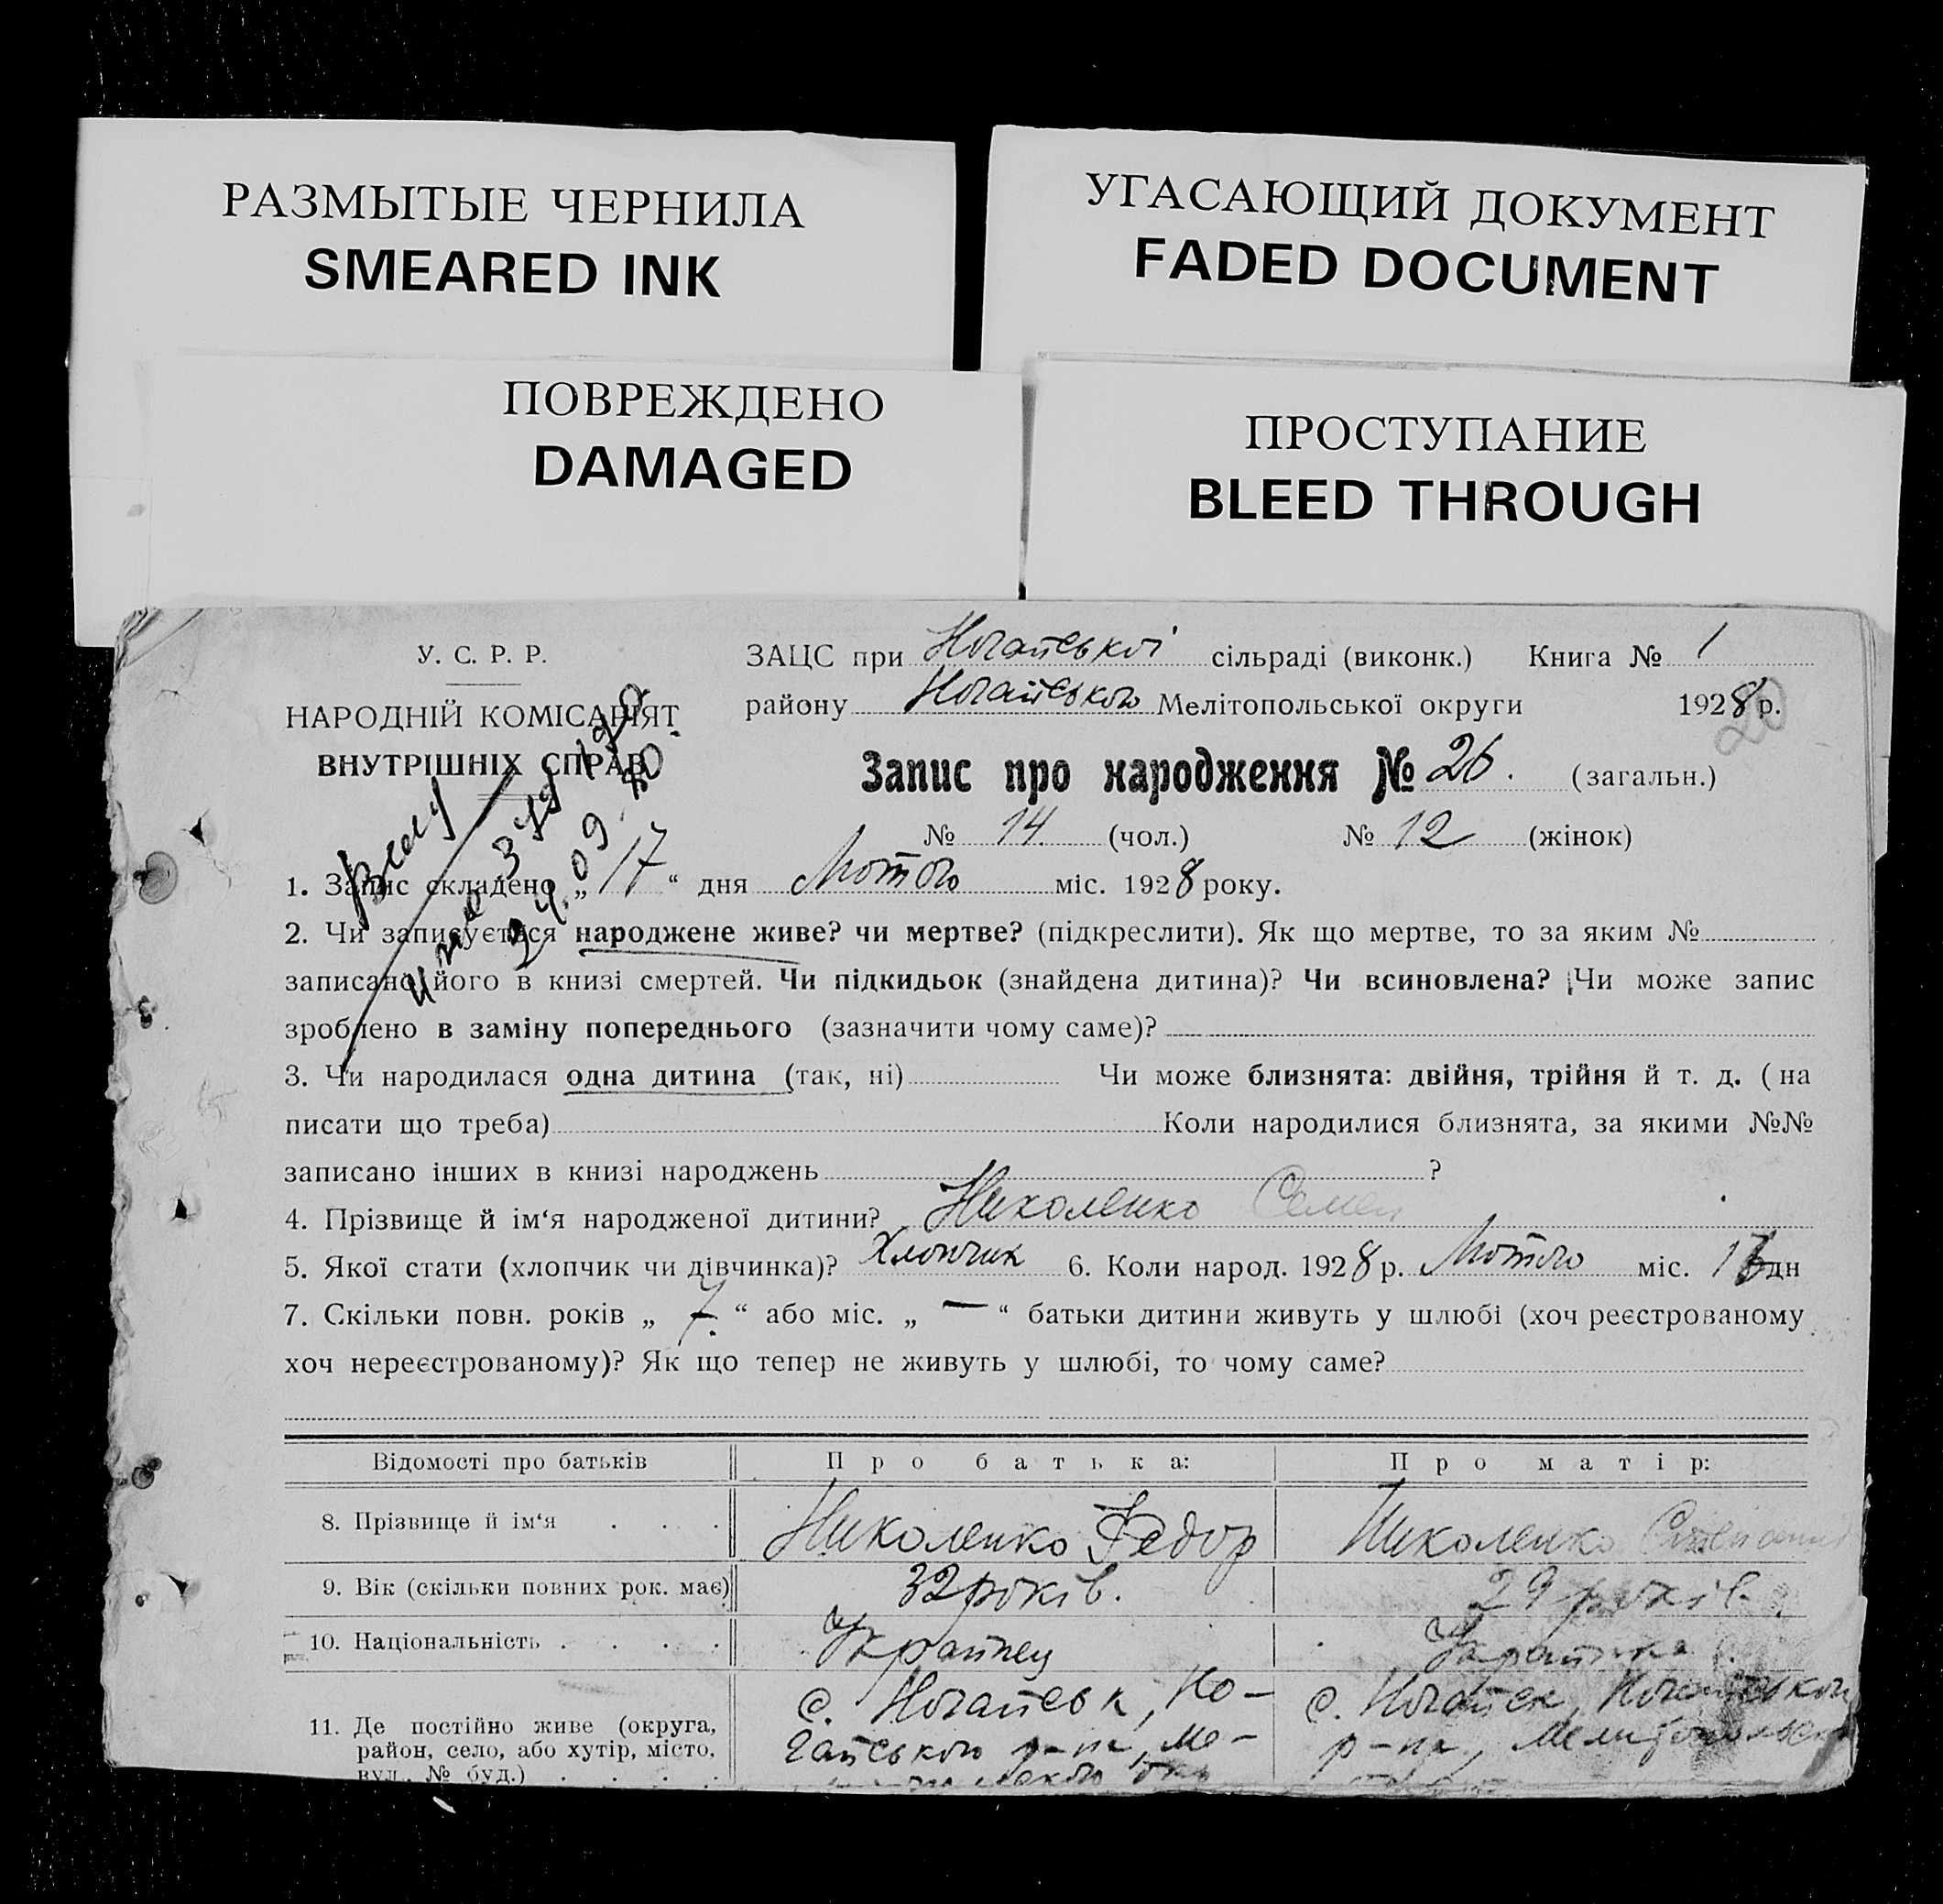 РАЗМЫТЫЕ ЧЕРНИЛА
SMEARED INK
УГАСАЮЩИЙ ДОКУМЕНТ
FADED DOCUMENT
ПОВРЕЖДЕНО
DAMAGED
ПРОСТУПАНИЕ
BLEED THROUGH
У. С. Р. Р.
НАРОДНІЙ КОМІСАРІЯТ
ВНУТРІШНІХ СПРАВ
ЗАЦС при Ногайській сільраді (виконк.) Книга № 1
району Ногайського Мелітопольської округи 1928 р.
20
Запис про народження № 26. (загальн.)
№ 14. (чол.) № 12 (жінок)
1. Запис складено „ 17 “ дня Лютого міс. 1928 року.
2. Чи записується народжене живе? чи мертве? (підкреслити). Як що мертве, то за яким №
записано його в книзі смертей. Чи підкидьок (знайдена дитина)? Чи всиновлена? Чи може запис
зроблено в заміну попереднього (зазначити чому саме)?
3. Чи народилася одна дитина (так, ні) Чи може близнята: двійня, трійня й т. д. (на
писати що треба) Коли народилися близнята, за якими №№
записано інших в книзі народжень ?
4. Прізвище й ім‘я народженої дитини? Николенко Семен
5. Якої стати (хлопчик чи дівчинка)? Хлопчик 6. Коли народ. 1928 р. Лютого міс. дн
7. Скільки повн. років „ 7. “ або міс. „ — “ батьки дитини живуть у шлюбі (хоч реєстрованому
хоч нереєстрованому)? Як що тепер не живуть у шлюбі, то чому саме?
Відомості про батьків Про батька: Про матір:
8. Прізвище й ім‘я . . . Николенко Федор Николенко
9. Вік (скільки повних рок. має) 32 років. 29 років.
10. Національність . . . . Українець Українка
11. Де постійно живе (округа,
район, село, або хутір, місто,
вул., № буд.) . . . .
с. Ногайськ, Но-
гайського р-на, Ме-
с. Ногайск, Ногайського
р-на, Мелитопольск